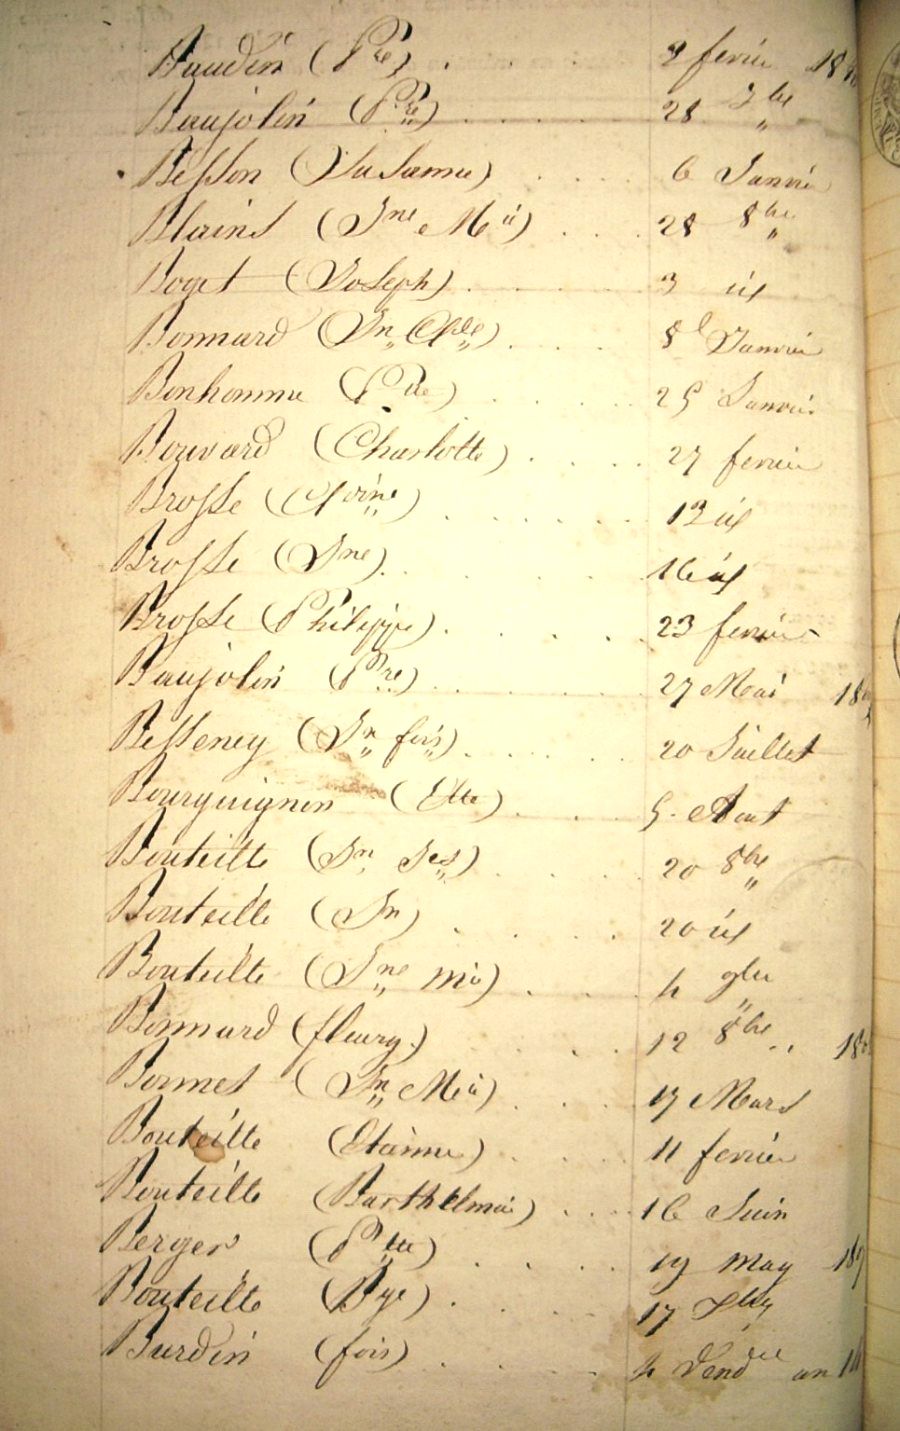 Baudin (Pre) . . . . 9 fevrier
Baujolin (Pre) . . . . . 28 7bre
Besson (Susanne) . . . 6 Janvier
Blains (Jne Mie) . . . 28 8bre
Boget (Joseph) . . . . 3 id
Bonnard (Jn Cde) . . . . 8 Janvier
Bonhomme (Pre) . . . . 25 Janvier
Bouvard (Charlotte) . . . . 27 fevrier
Brosse (Atoine) . . . . . . 13 id
Brosse (Jne) . . . . . 16 id
Brosse (Philippe) . . . . 23 fevrier
Baujolin (Pre) . . . . . 27 Mai
Besseney (Jn fois) . . . . . 20 Juillet
Bourguignon (Ette) . . . 5 Aout
Bouteille (Jn Jes) . . . . 20 8bre
Bouteille (Jn) . . . . 20 id
Bouteille (Jne mie) . . . 4 9bre
Bonnard (fleury) . . . . 12 8bre
Bonnet (Jn Mie) . . . 17 Mars
Bouteille (Etienne) . . . . 11 fevrier
Bouteille (Barthelmie) . . . . 16 Juin
Berger (Ptte) . . . . . 19 may
Bouteille (Bge) . . . . . 17
Burdin (fois) . . . . . 4 Vendre an